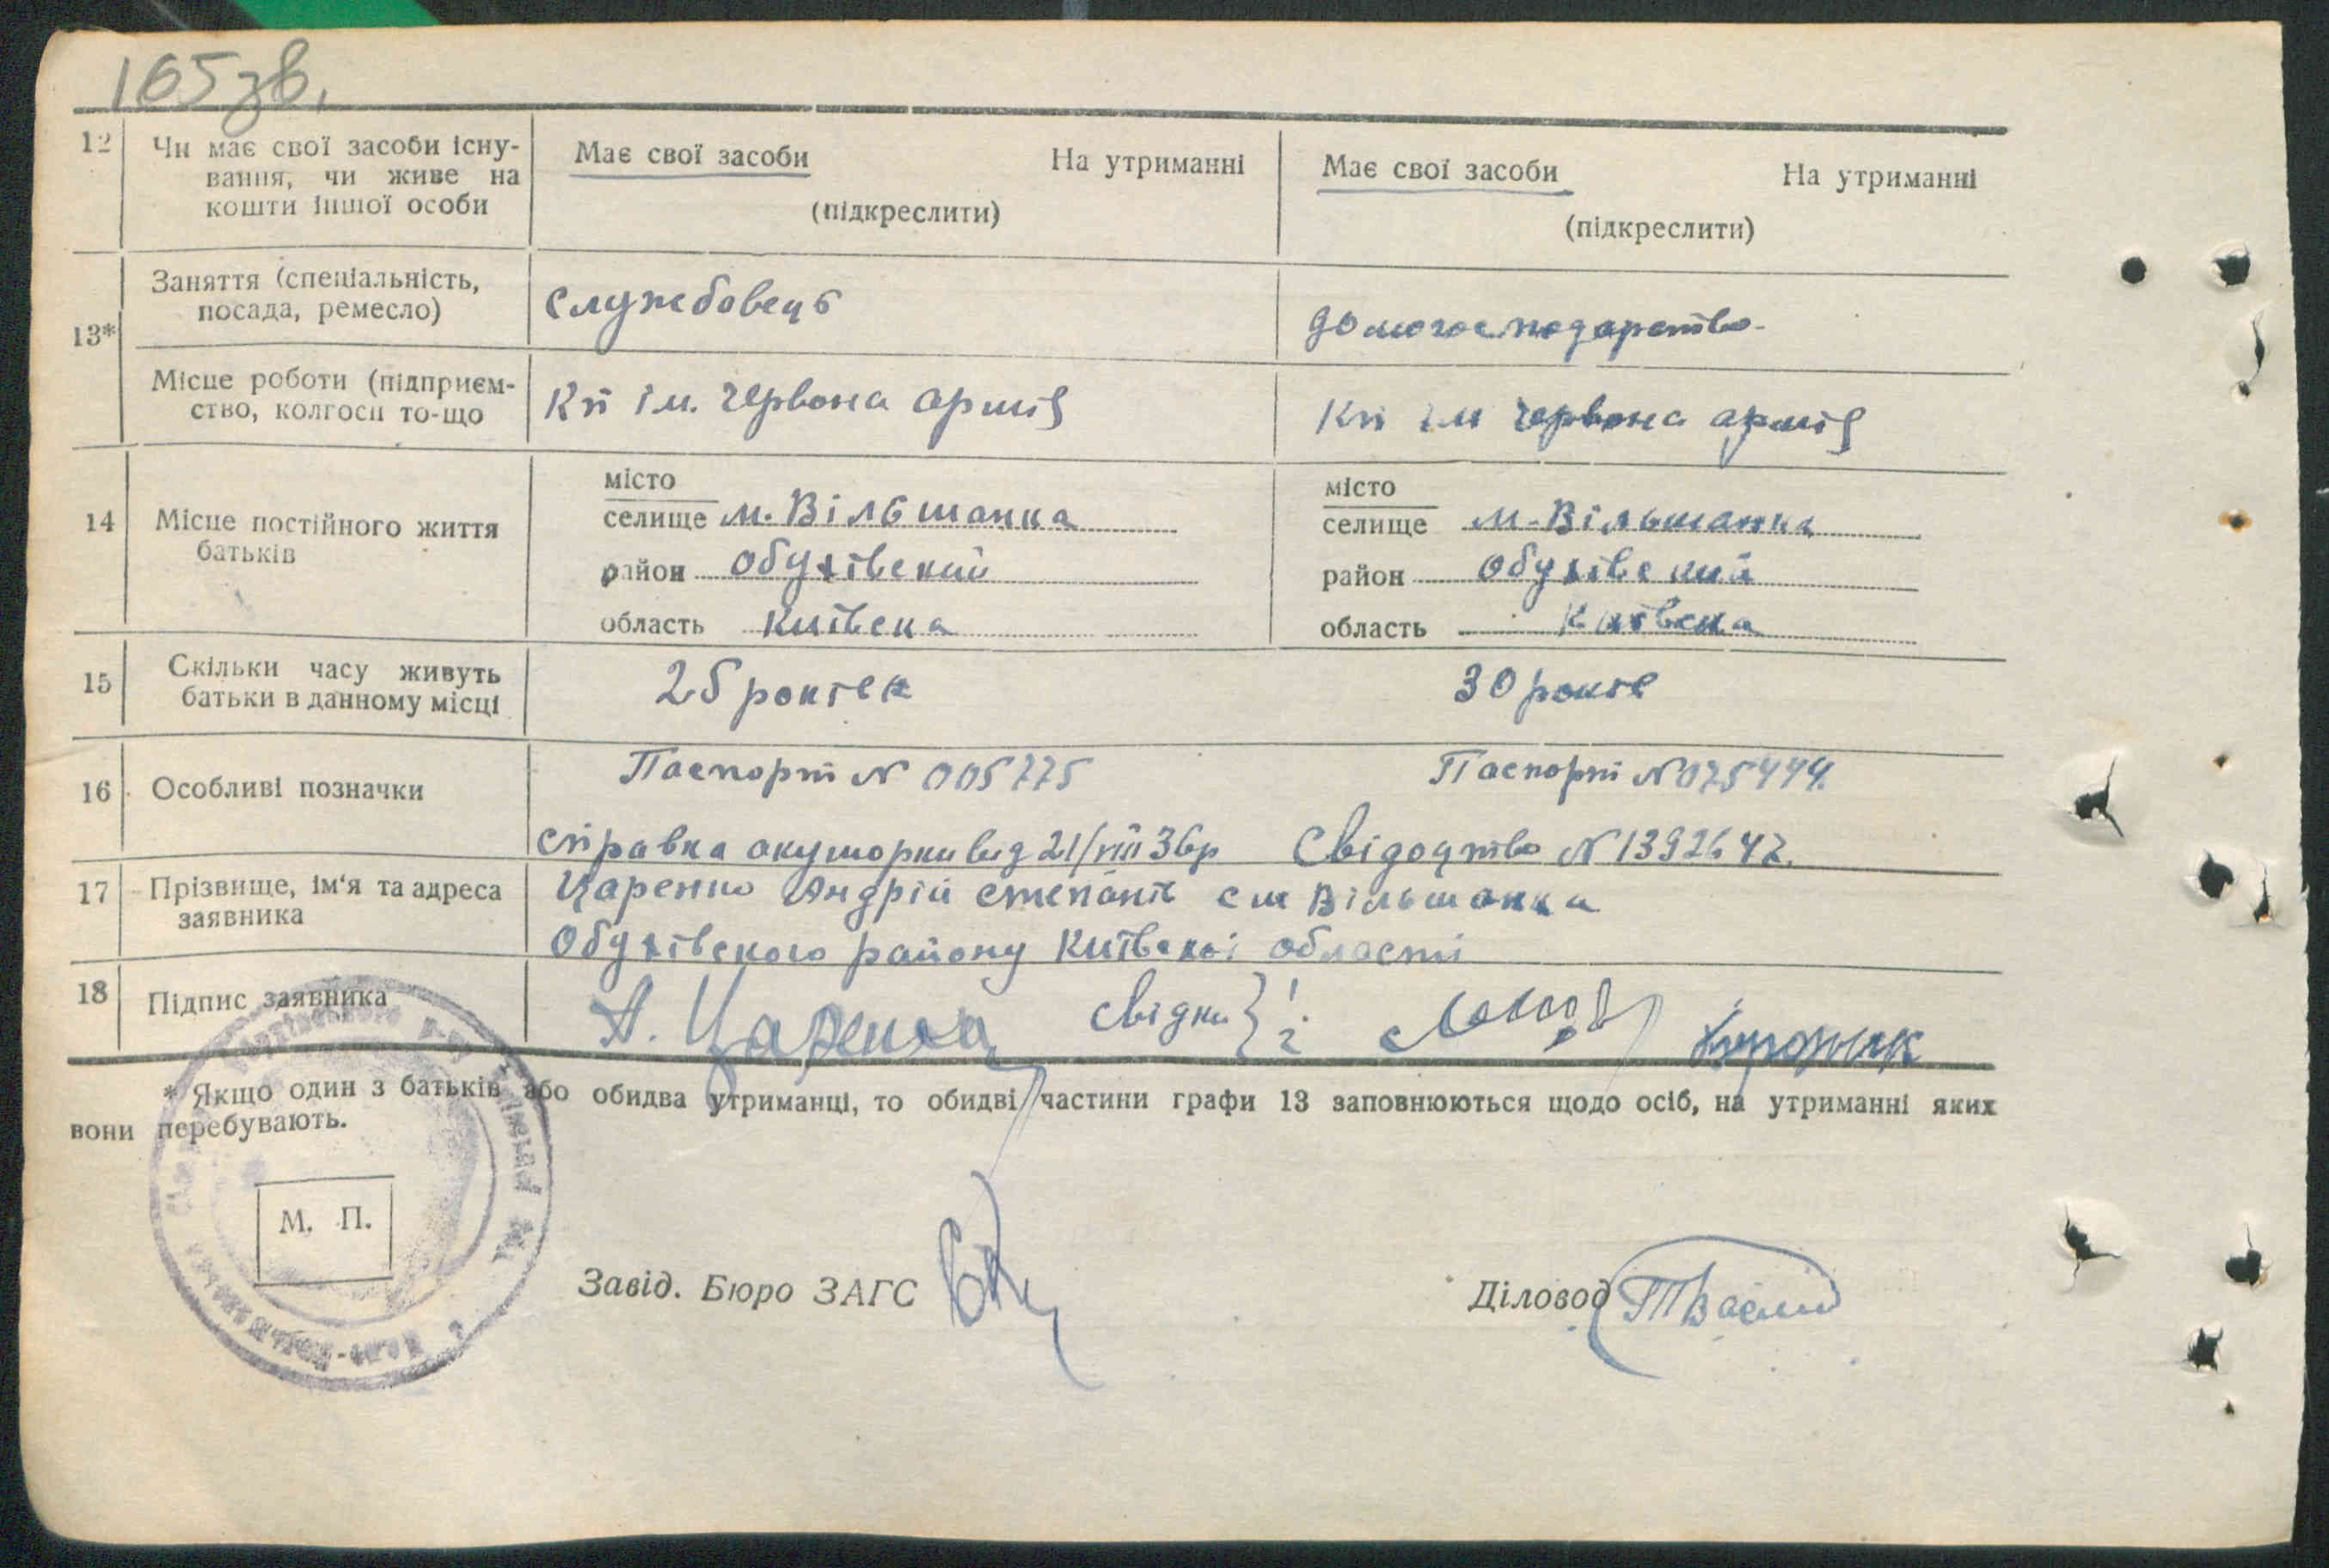 165 зв.
12 Чи має свої засоби існу- Має свої засоби На утриманні Має свої засоби На утриманні
вання, чи живе на
кошти іншої особи (підкреслити) (підкреслити)
13* Заняття (спеціальність, службовець домогосподарство
посада, ремесло)
Місце роботи (підприєм- Кп ім. Червона армія Кп ім Червона армія
ство, колгосп то-що
місто місто
14 Місце постійного життя селище м. Вільшанка селище м. Вільшанка
батьків район Обухівский район Обухівский
область Київска область Київска
15 Скільки часу живуть 25 30 років
батьки в данному місці
16 Особливі позначки Паспорт N 005775 Паспорт N 075444.
справка акушорки від 21/VIII 36р Свідоцтво N 1392647.
17 Прізвище, ім'я та адреса Царенко Андрій см Вільшанка
заявника Обухівского району Київскої області
18 Підпис заявника А. Царенко свідки } 1. 2
* Якщо один з батьків або обидва утриманці, то обидві частини графи 13 заповнюються щодо осіб, на утриманні яких
вони перебувають.
М. П.
Завід. Бюро ЗАГС Діловод